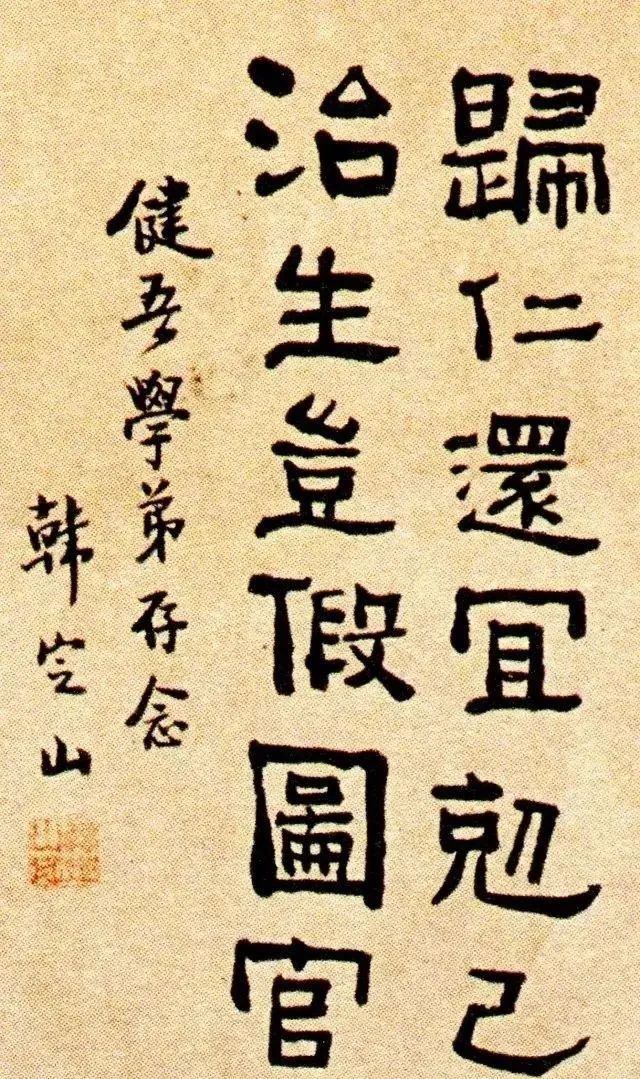 歸仁還宜剋己
治生豈假圖官
健吾學弟存念
韩定山